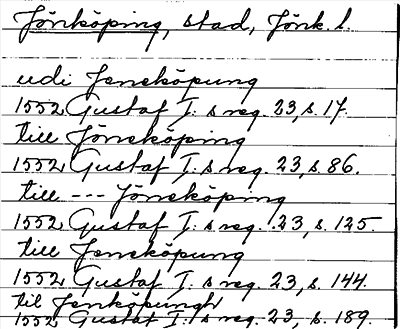 Jönköping, stad, Jönk. l.
udi Jeneköpung
1552 Gustaf I:s reg. 23, s. 17.
till Jöneköping
1552 Gustaf I:s reg. 23, s. 86.
till --- Jöneköping
1552 Gustaf I:s reg. 23, s. 125.
till Jeneköpung
1552 Gustaf I:s reg. 23, s. 144.
til Jenköpungh
1552 Gustaf I:s reg. 23, s. 189.